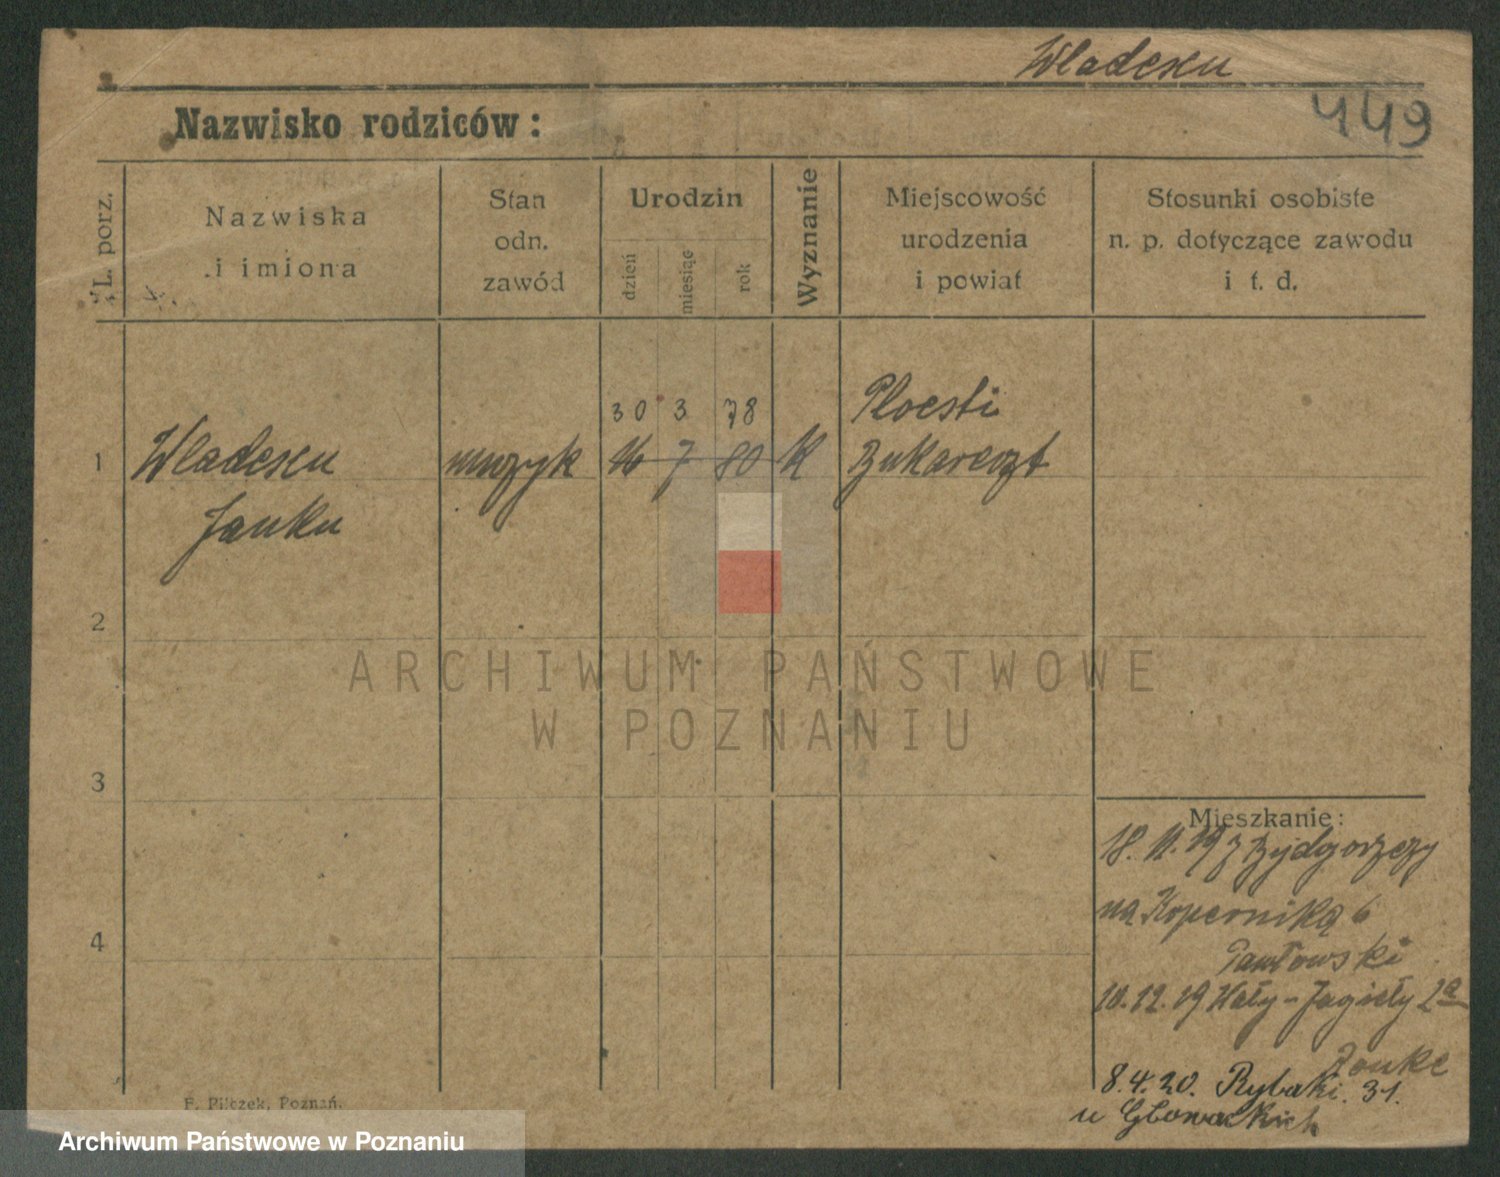 Wladescu
449
Nazwisko rodziców:
L. porz.
Nazwiska
i imiona
Stan
odn.
zawód
Urodzin
dzień
miesiąc
rok
Wyznanie
Miejscowość
urodzenia
i powiat
Stosunki osobiste
n. p. dotyczące zawodu
i t. d.
30 3 78
Ploesti
1 Wladescu muzyk 16 7 80 K Bukareszt
Janku
2
3
4
Mieszkanie:
18. 11. 19 z Bydgoszczy
na Kopernika 6
Pawłowski
10. 12. 19 Wały-Jagiełły 2a
8. 4. 20. Rybaki. 31.
u Głowackich
F. Pilczek, Poznań.
ARCHIWUM PAŃSTWOWE
W POZNANIU
Archiwum Państwowe w Poznaniu